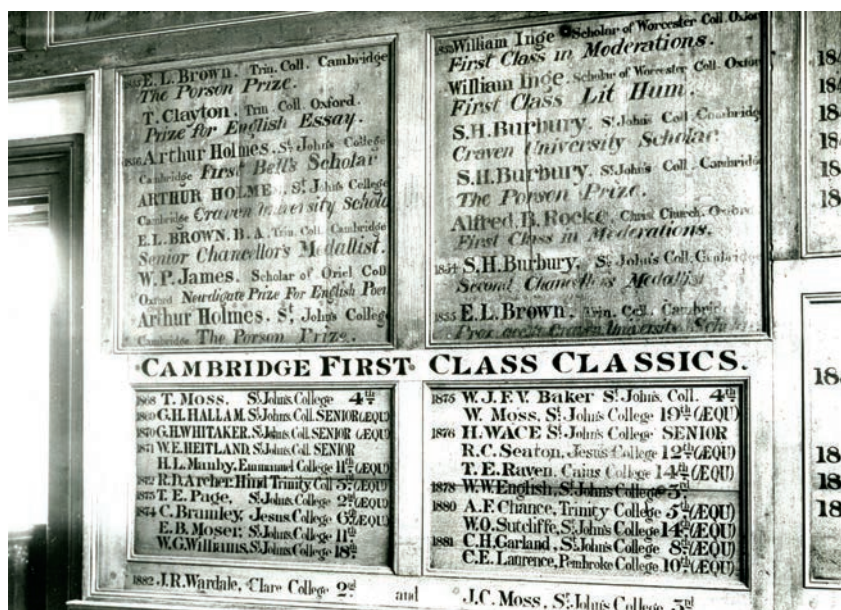 1855 E. L. Brown. Trin. Coll. Cambridge
The Porson Prize.
T. Clayton, Trin. Coll. Oxford.
Prize for English Essay.
1856 Arthur Holmes, St. John's College
Cambridge First Bell's Scholar
ARTHUR HOLMES, St. John's College
Cambridge Craven University Schola
E.L. BROWN. B.A. Trin. Coll. Cambridge
Senior Chancellor's Medallist.
W. P. James. Scholar of Oriel Coll
Oxford Newdigate Prize For English Poem
Arthur Holmes. St. John's College
Cambridge The Porson Prize.
William Inge Scholar of Worcester Coll. Oxford
First Class in Moderations.
William Inge. Scholar of Worcester Coll. Oxford
First Class Lit Hum.
S.H. Burbury. St. John's Coll. Cambridge
Craven University Scholar.
S.H. Burbury. St. John's Coll. Cambridge
The Porson Prize.
Alfred. B. Rocke. Christ Church. Oxford
First Class in Moderations.
1854 S.H. Burbury, St. John's Coll. Cambridge
Second Chancellor's Medallist
1855 E.L. Brown, Trin. Coll. Cambridge
Craven University Schola
CAMBRIDGE FIRST CLASS CLASSICS.
1868 T. Moss. St. John's College 4th
1869 G.H. HALLAM. St. John's Coll. SENIOR (ÆQU)
1870 G.H. WHITAKER. St. John's Coll. SENIOR (ÆQU)
1871 W.E. HEITLAND. St. John's Coll. SENIOR
H.L. Manby, Emmanuel College 11th (ÆQU)
1872 R.D. Archer. Hind Trinity Coll 3rd (ÆQU)
1873 T. E. Page, St. John's College 2nd (ÆQU)
1874 C. Bramley, Jesus College 6th (ÆQU)
E.B. Moser, St. John's College 11th
W.G. Williams, St. John's College 18th
1875 W. J. F. V. Baker St. John's Coll. 4th
W. Moss, St. John's College 19th (ÆQU)
1876 H. WACE St. John's College SENIOR
R.C. Seaton, Jesus College 12th (ÆQU)
T. E. Raven, Caius College 14th (ÆQU)
1878 W.W. English, St. John's College 3rd
1880 A.F. Chance, Trinity College 5th (ÆQU)
W.O. Sutcliffe, St. John's College 14th (ÆQU)
1881 C.H. Garland, St. John's College 8th (ÆQU)
C.E. Laurence, Pembroke College 10th (ÆQU)
1882 J.R. Wardale, Clare College 2nd and J.C. Moss, St. John's College 3rd